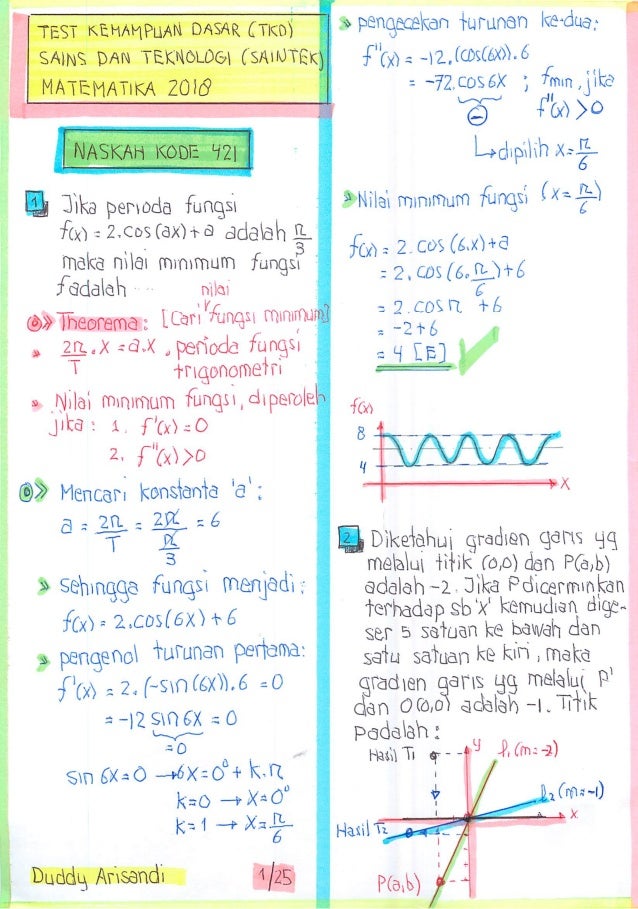 TEST KEMAMPUAN DASAR (TKD)
SAINS DAN TEKNOLOGI (SAINTEK)
MATEMATIKA 2018
NASKAH KODE 421
1 Jika perioda fungsi
f(x) = 2.cos(ax)+a adalah π/3
maka nilai minimum fungsi
f adalah ...
Theorema: [Cari nilai fungsi minimum]
2π/T . x = a.x , perioda fungsi
trigonometri
Nilai minimum fungsi, diperoleh
jika : 1. f'(x) = 0
2. f''(x) > 0
Mencari konstanta 'a':
a = 2π/T = 2π/(π/3) = 6
sehingga fungsi menjadi:
f(x) = 2.cos(6x) + 6
pengenol turunan pertama:
f'(x) = 2.(-sin(6x)).6 = 0
= -12 sin 6x = 0
=0
sin 6x = 0 → 6x = 0° + k.π
k=0 → x = 0°
k=1 → x = π/6
Duddy Arisandi
1/25
pengecekan turunan ke-dua:
f''(x) = -12.(cos(6x)).6
= -72.cos 6x ; fmin, jika
⊖ f''(x) > 0
↳ dipilih x = π/6
Nilai minimum fungsi (x = π/6)
f(x) = 2.cos(6.x)+a
= 2.cos(6.π/6)+6
= 2.cos π + 6
= -2+6
= 4 [E]
f(x)
8
4
x
2 Diketahui gradien garis yg
melalui titik (0,0) dan P(a,b)
adalah -2. Jika P dicerminkan
terhadap sb 'x' kemudian dige-
ser 5 satuan ke bawah dan
satu satuan ke kiri, maka
gradien garis yg melalui P'
dan O(0,0) adalah -1. Titik
P adalah :
Hasil T1
y
l1 (m=-2)
l2 (m=-1)
x
Hasil T2
P(a,b)